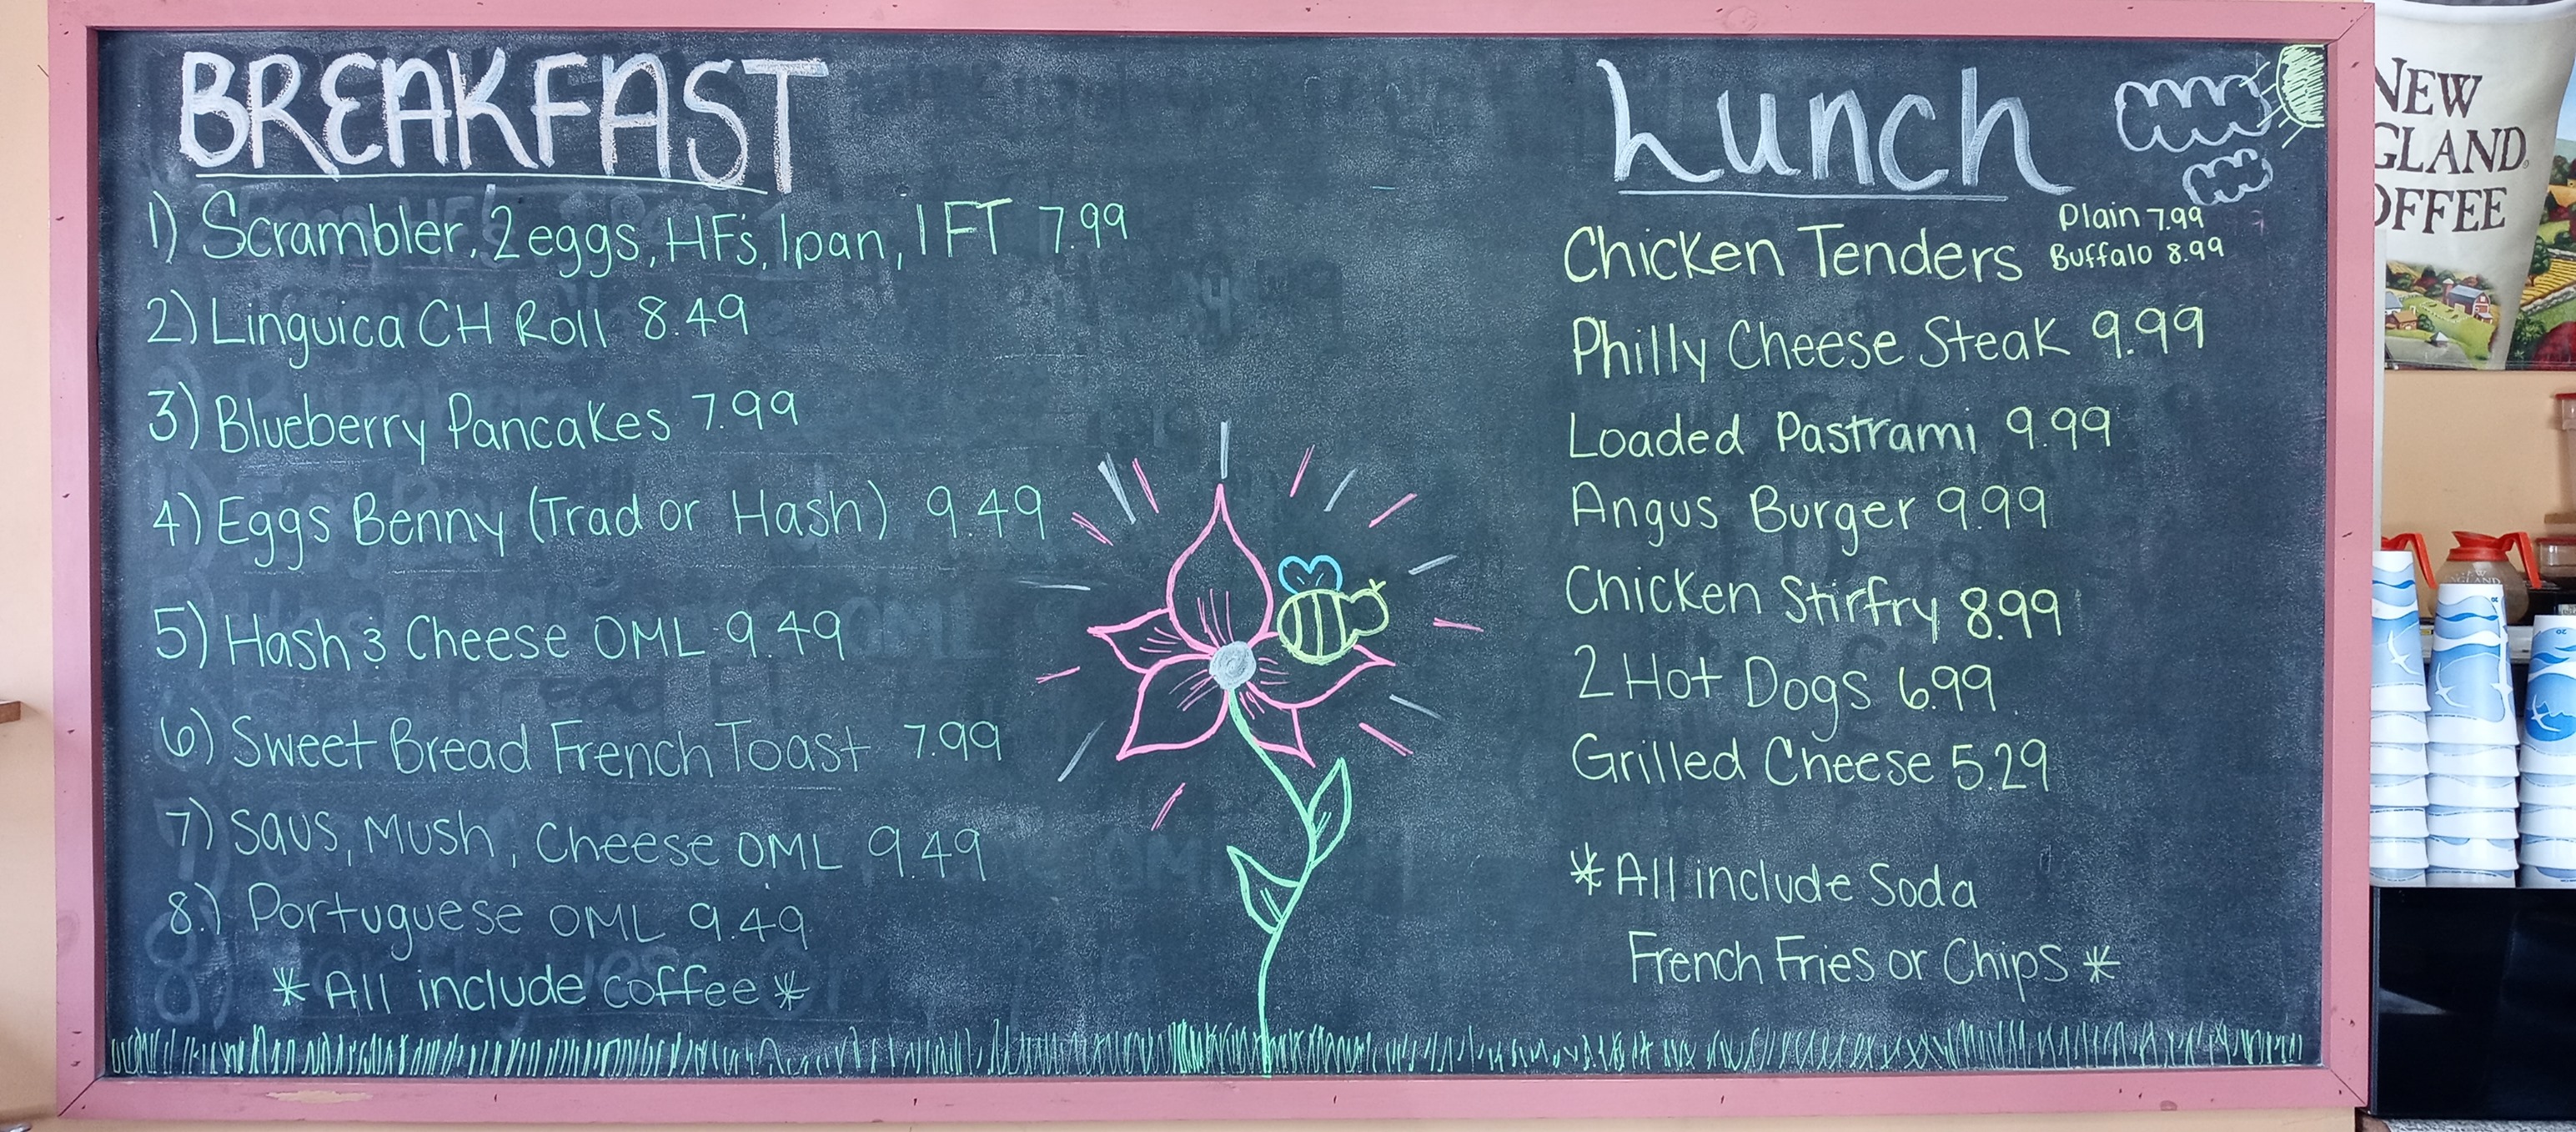 BREAKFAST
1) Scrambler, 2 eggs, HF's, 1pan, 1 FT 7.99
2) Linguica CH Roll 8.49
3) Blueberry Pancakes 7.99
4) Eggs Benny (Trad or Hash) 9.49
5) Hash & Cheese OML 9.49
6) Sweet Bread French Toast 7.99
7) Saus, Mush, Cheese OML 9.49
8.) Portuguese OML 9.49
* All include coffee *
Lunch
Chicken Tenders Plain 7.99
Buffalo 8.99
Philly Cheese Steak 9.99
Loaded Pastrami 9.99
Angus Burger 9.99
Chicken Stirfry 8.99
2 Hot Dogs 6.99
Grilled Cheese 5.29
* All include Soda
French Fries or Chips *
NEW
GLAND
OFFEE